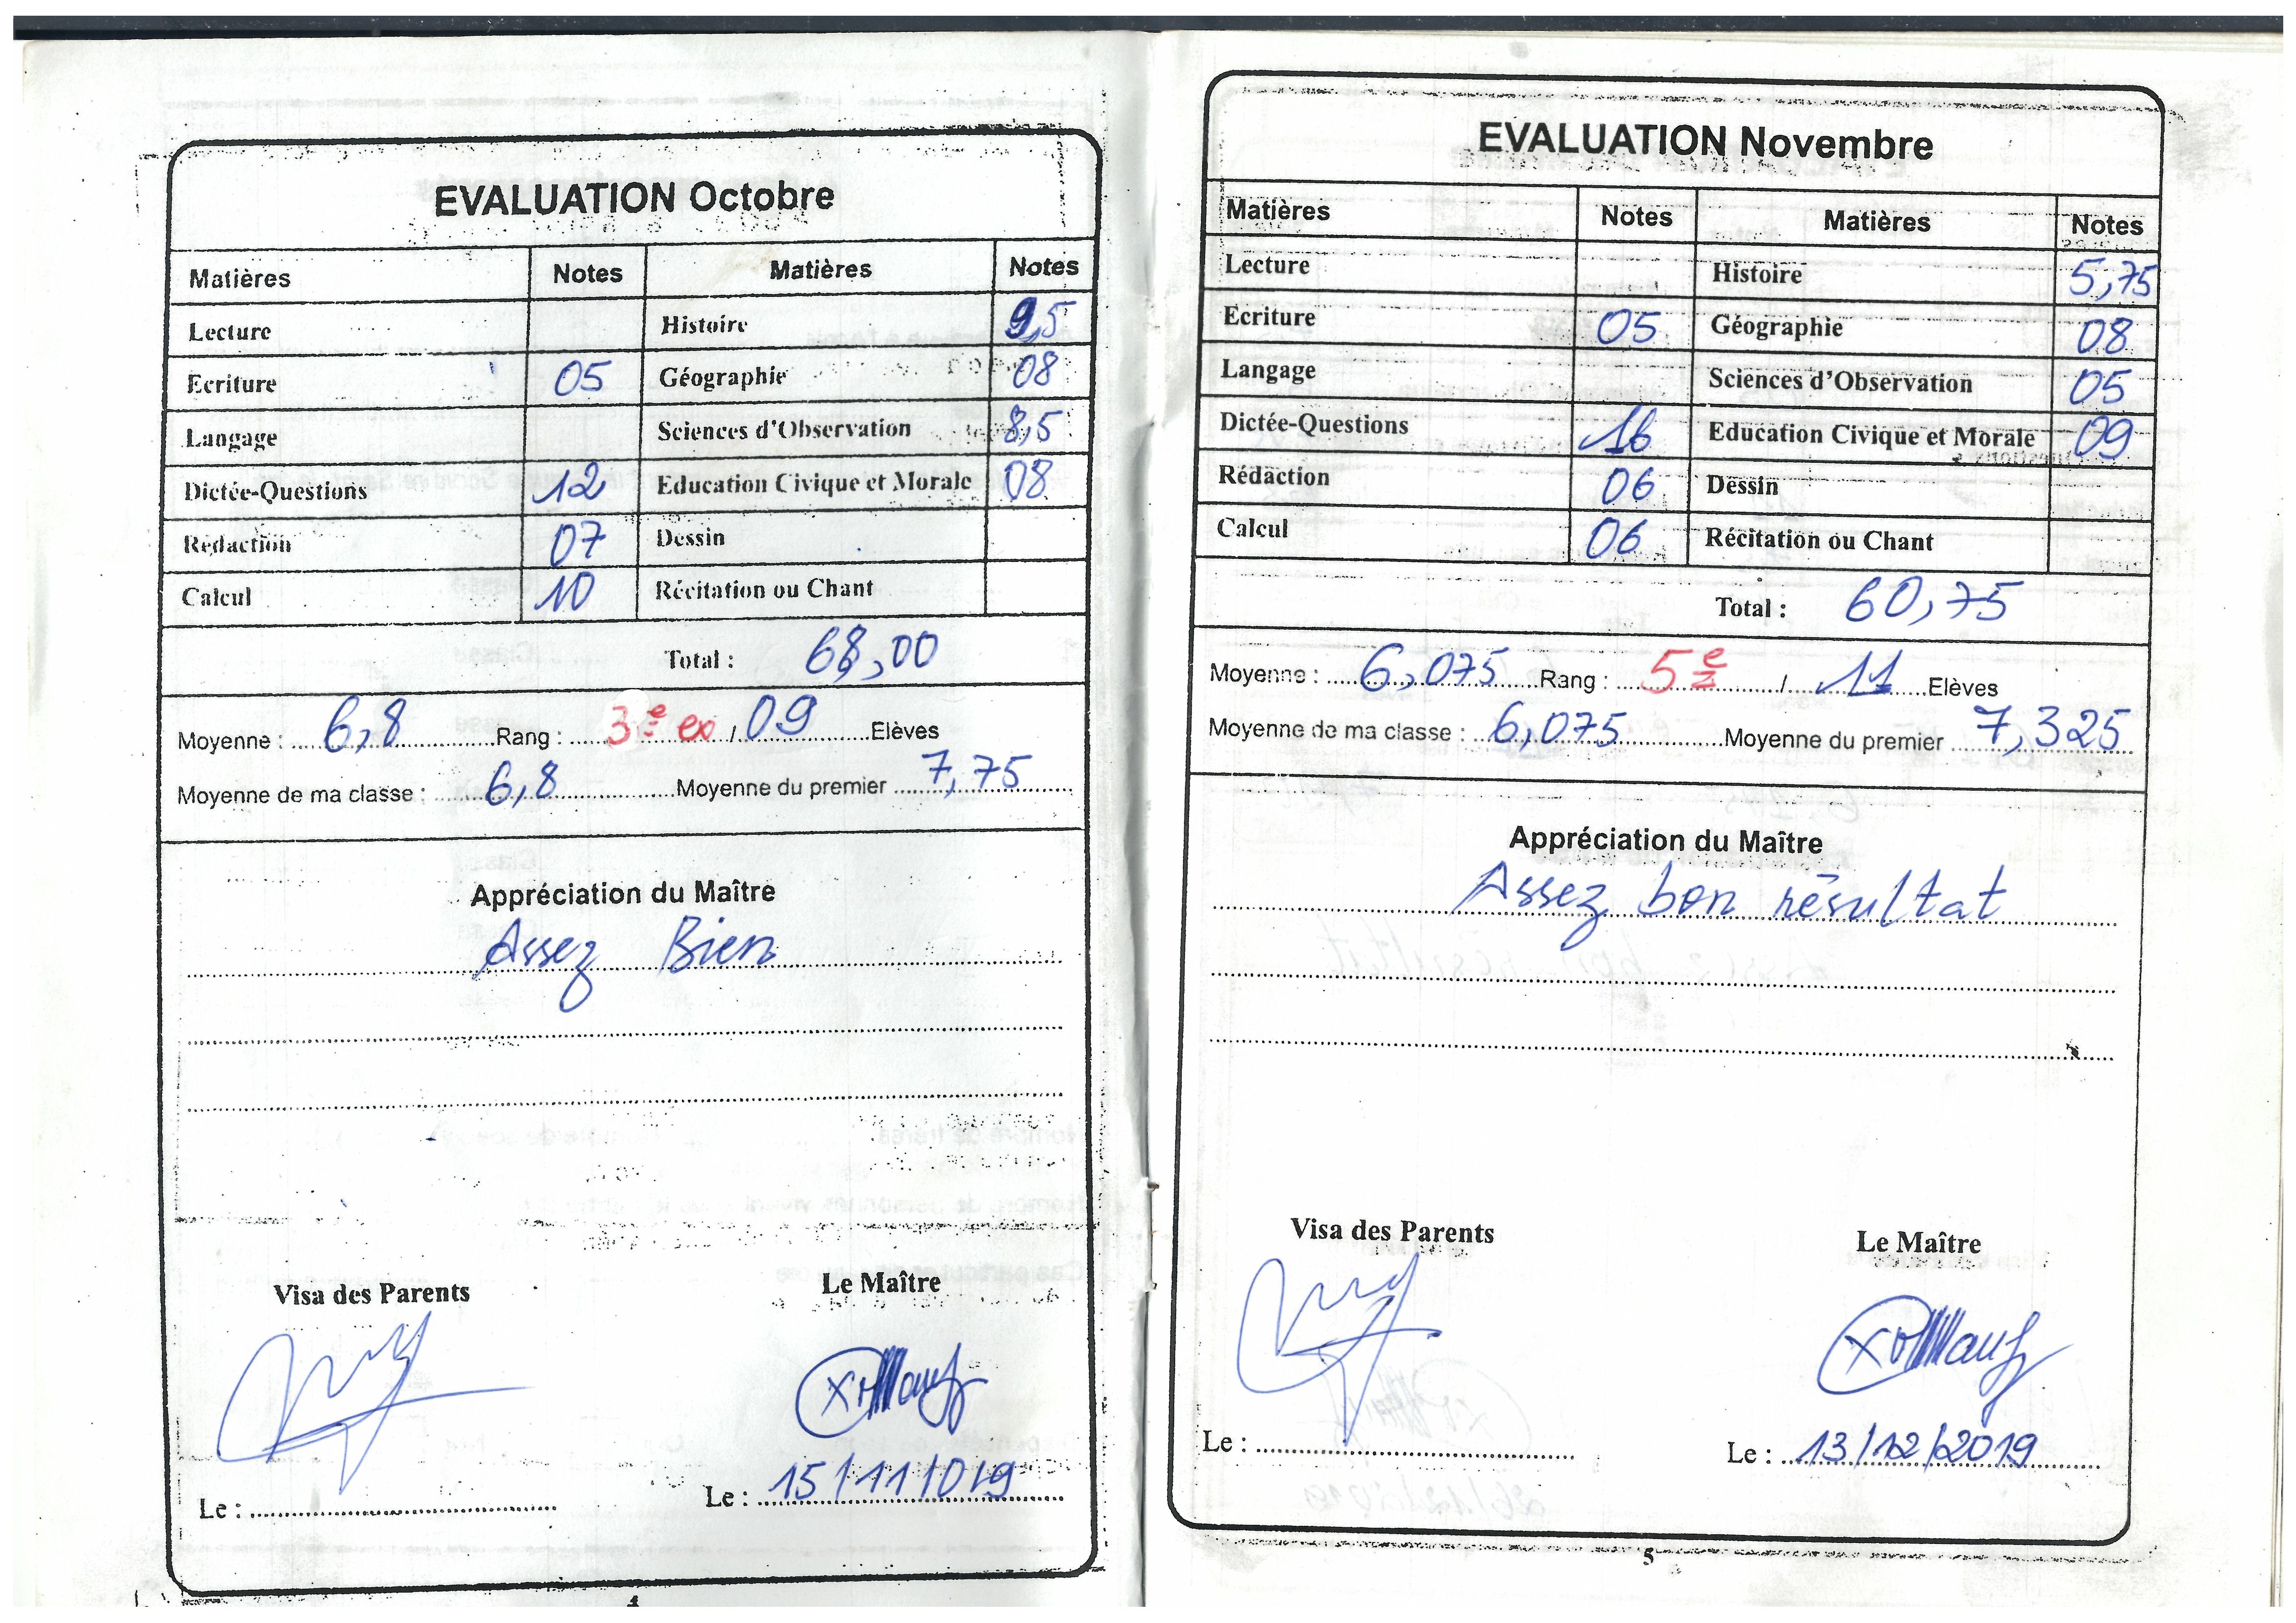 EVALUATION Octobre
Matières Notes Matières Notes
Lecture Histoire 9,5
Ecriture 05 Géographie 08
Langage Sciences d'Observation 8,5
Dictée-Questions 12 Education Civique et Morale 08
Rédaction 07 Dessin
Calcul 10 Récitation ou Chant
Total : 68,00
Moyenne : 6,8 Rang : 3e ex / 09 Elèves
Moyenne de ma classe : 6,8 Moyenne du premier 7,75
Appréciation du Maître
Assez Bien
Visa des Parents Le Maître
Le : Le : 15/11/019
4
EVALUATION Novembre
Matières Notes Matières Notes
Lecture Histoire 5,75
Ecriture 05 Géographie 08
Langage Sciences d'Observation 05
Dictée-Questions 16 Education Civique et Morale 09
Rédaction 06 Dessin
Calcul 06 Récitation ou Chant
Total : 60,75
Moyenne : 6,075 Rang : 5e / 11 Elèves
Moyenne de ma classe : 6,075 Moyenne du premier 7,325
Appréciation du Maître
Assez bon résultat
Visa des Parents Le Maître
Le : Le : 13/12/2019
5